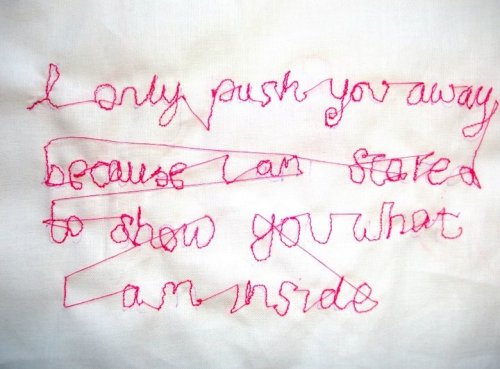 I only push you away
because I am scared
to show you what
I am inside